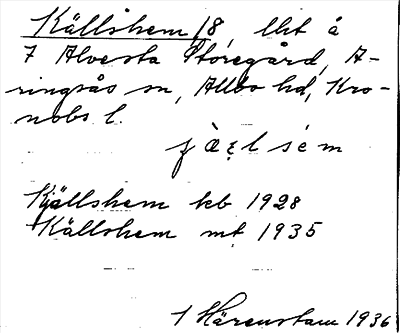 Källshem /8, lht å
7 Alvesta Storegård, A-
ringsås sn, Allbo hd, Kro-
nobs l.
Källshem kb 1928
Källshem mt 1935
1 Härenstam 1936